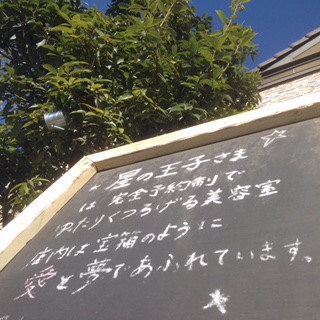 星の王子さま
は完全予約制で
ゆたりくつろげる美容室
店内は宝箱のように
愛と夢であふれています。